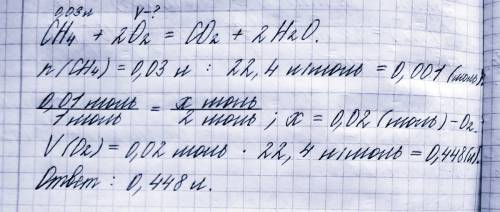 0,03 л V-?
CH4 + 2O2 = CO2 + 2H2O.
n(CH4) = 0,03 л : 22,4 л/моль = 0,001 (моль).
0,01 моль / 1 моль = x моль / 2 моль ; x = 0,02 (моль) - O2.
V(O2) = 0,02 моль · 22,4 л/моль = 0,448 (л).
Ответ : 0,448 л.